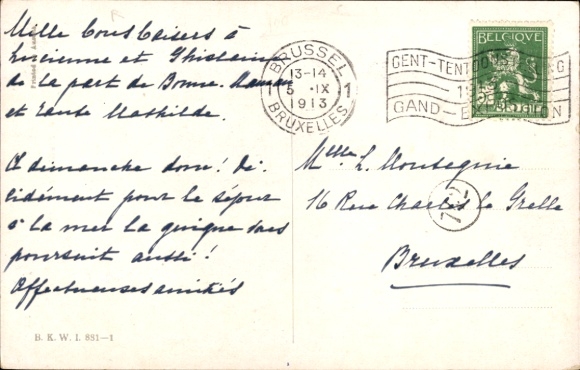 Mille bons baisers à
Lucienne et Ghislaine
de la part de Bonne Maman
et tante Mathilde.
A dimanche donc! Dé-
cidément pour le séjour
à la mer la guigne vous
poursuit aussi!
Affectueuses amitiés
B. K. W. I. 851—1
Printed in
BRUSSEL
13-14
5 IX
1913
1 1
BRUXELLES
GENT-TENTOONSTELLING
GAND-EXPOSITION
BELGIQUE
BELGIË
Melle L. Montegnie
16 Rue Charles le Grelle
Bruxelles